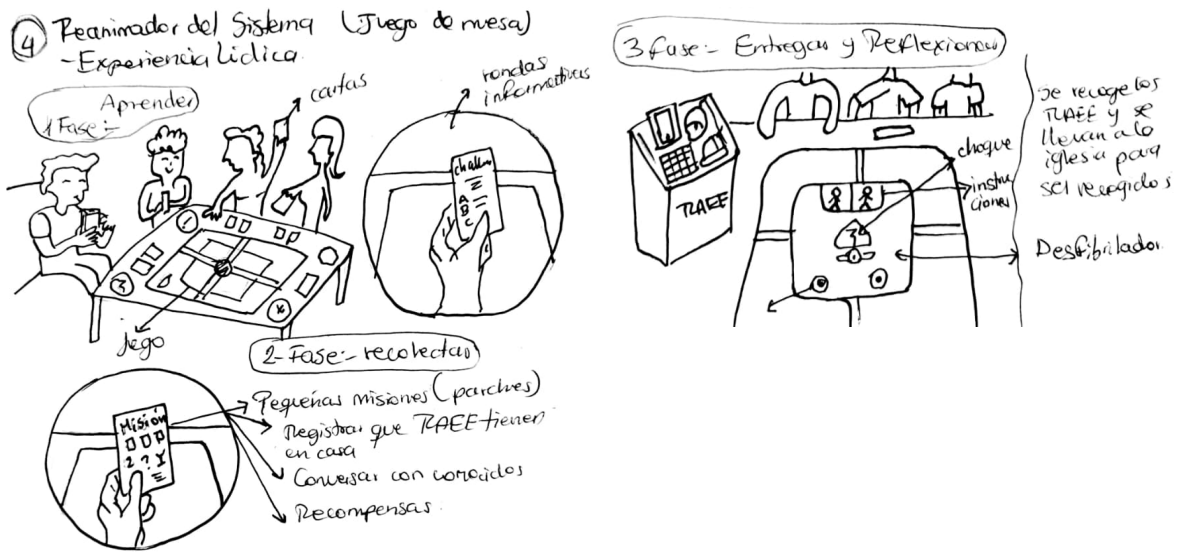 4 Reanimador del Sistema (Juego de mesa)
- Experiencia Lúdica.
Aprender
1 Fase:-
cartas
rondas
informativas
challen
A
B
C
juego
2- Fase:- recolectar
Misión
2 ? Y
Pequeñas misiones (parches)
Registrar que RAEE tienen
en casa
Conversar con conocidos
Recompensas.
3 fase:- Entregar y Reflexionar
RAEE
choque
instru
ciones
3
Desfibrilador
Se recoge los
RAEE y se
llevan a la
iglesia para
ser recogidos